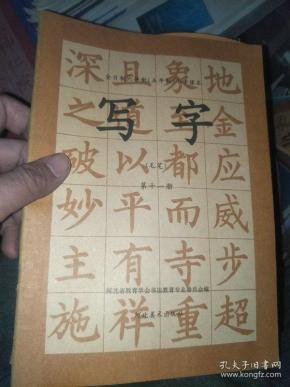 深且象地
之道至金
写字
破以都应
(毛笔)
第十一册
妙平而威
主有寺步
河北美术出版社
施祥重超
孔夫子旧书网